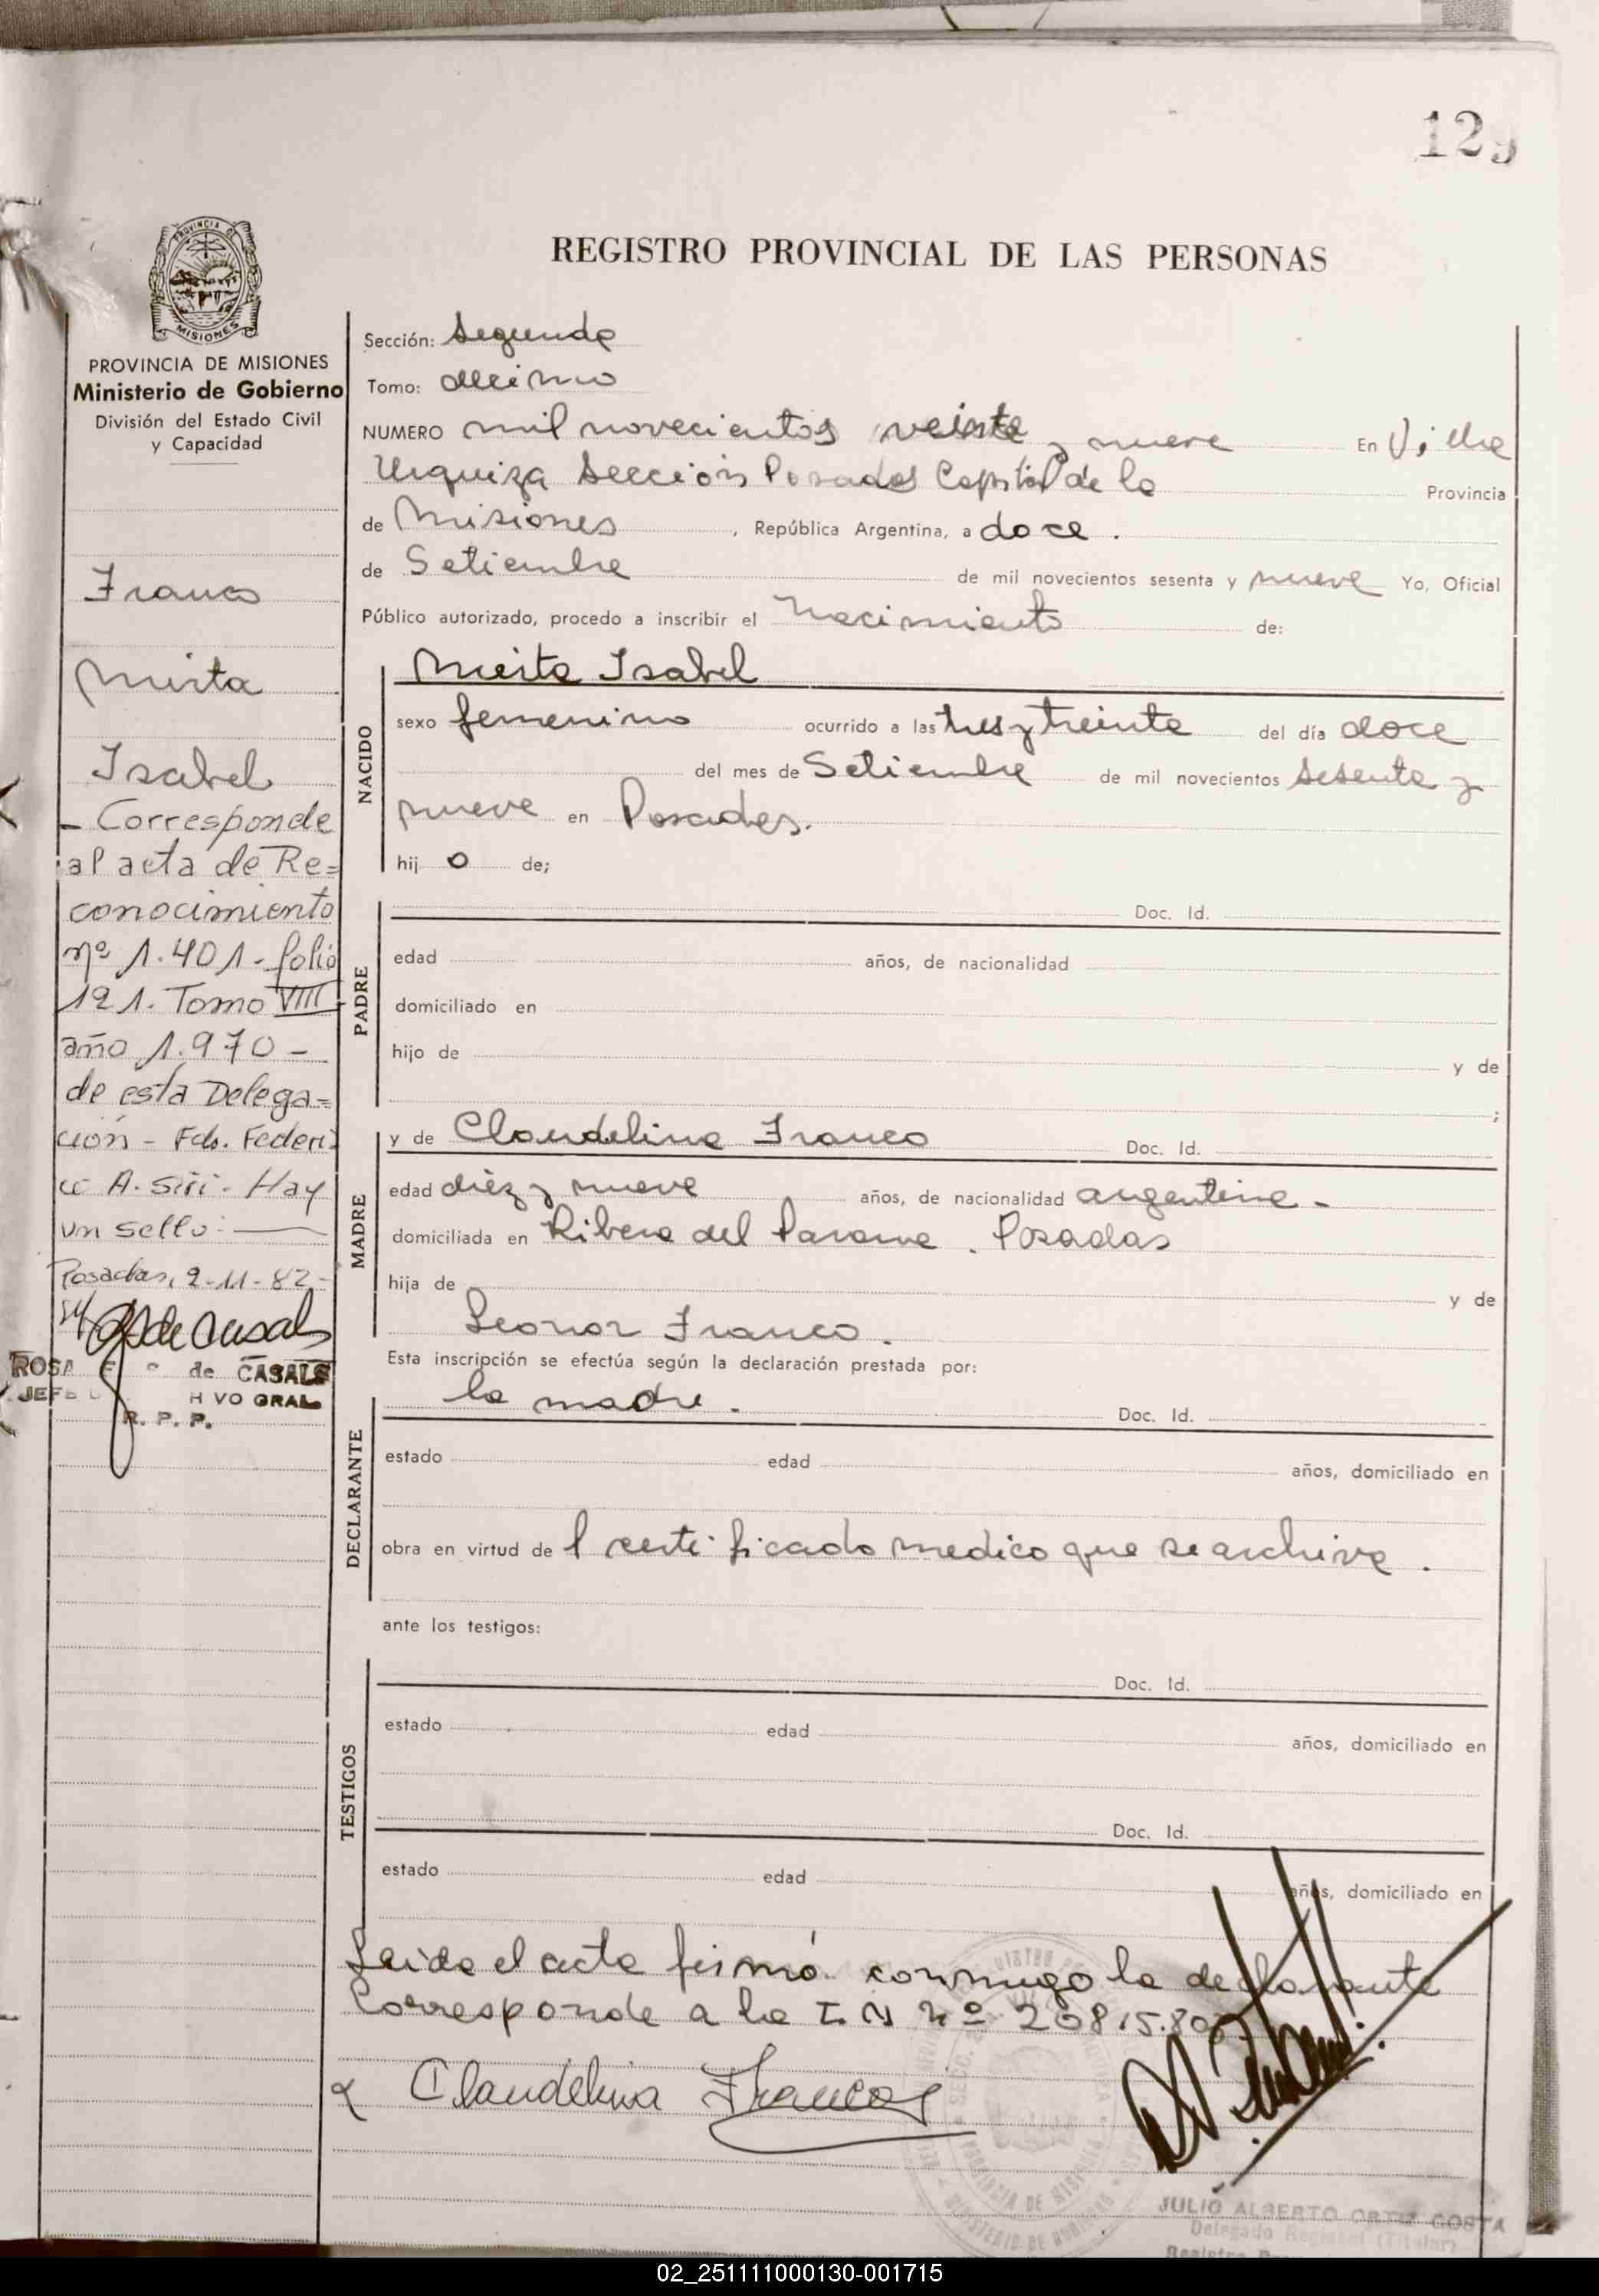 129
REGISTRO PROVINCIAL DE LAS PERSONAS
PROVINCIA DE
MISIONES
PROVINCIA DE MISIONES
Ministerio de Gobierno
División del Estado Civil
y Capacidad
Franco
Mirta
Isabel
- Corresponde
al acta de Re=
conocimiento
nº 1.401- folio
121. Tomo VIII
año 1.970 -
de esta Delega=
ción - Fdo. Federi
co A. Siri - Hay
un sello:
Posadas, 2-11-82.-
ROSA de CASALS
JEFE VO GRAL
R. P. P.
Sección: Segunda
Tomo: decimo
NUMERO mil novecientos veinte y nueve En Villa
Urquiza Sección Posadas Capital de la Provincia
de Misiones, República Argentina, a doce.
de Setiembre de mil novecientos sesenta y nueve Yo, Oficial
Público autorizado, procedo a inscribir el Nacimiento de:
NACIDO
Mirta Isabel
sexo femenino ocurrido a las tres y treinta del día doce
del mes de Setiembre de mil novecientos sesenta y
nueve en Posadas.
hij o de;
PADRE
Doc. Id.
edad años, de nacionalidad
domiciliado en
hijo de y de
;
MADRE
y de Claudelina Franco Doc. Id.
edad diez y nueve años, de nacionalidad argentina -
domiciliada en Ribera del Parana. Posadas
hija de y de
Leonor Franco.
Esta inscripción se efectúa según la declaración prestada por:
DECLARANTE
la madre. Doc. Id.
estado edad años, domiciliado en
obra en virtud de l certificado medico que se archiva.
ante los testigos:
TESTIGOS
Doc. Id.
estado edad años, domiciliado en
Doc. Id.
estado edad años, domiciliado en
Leida el acta firmó conmigo la declarante
Corresponde a la L. N nº 20815.80
Claudelina Franco
JULIO ALBERTO ORTIZ COSTA
Delegado Regional (Titular)
02_251111000130-001715